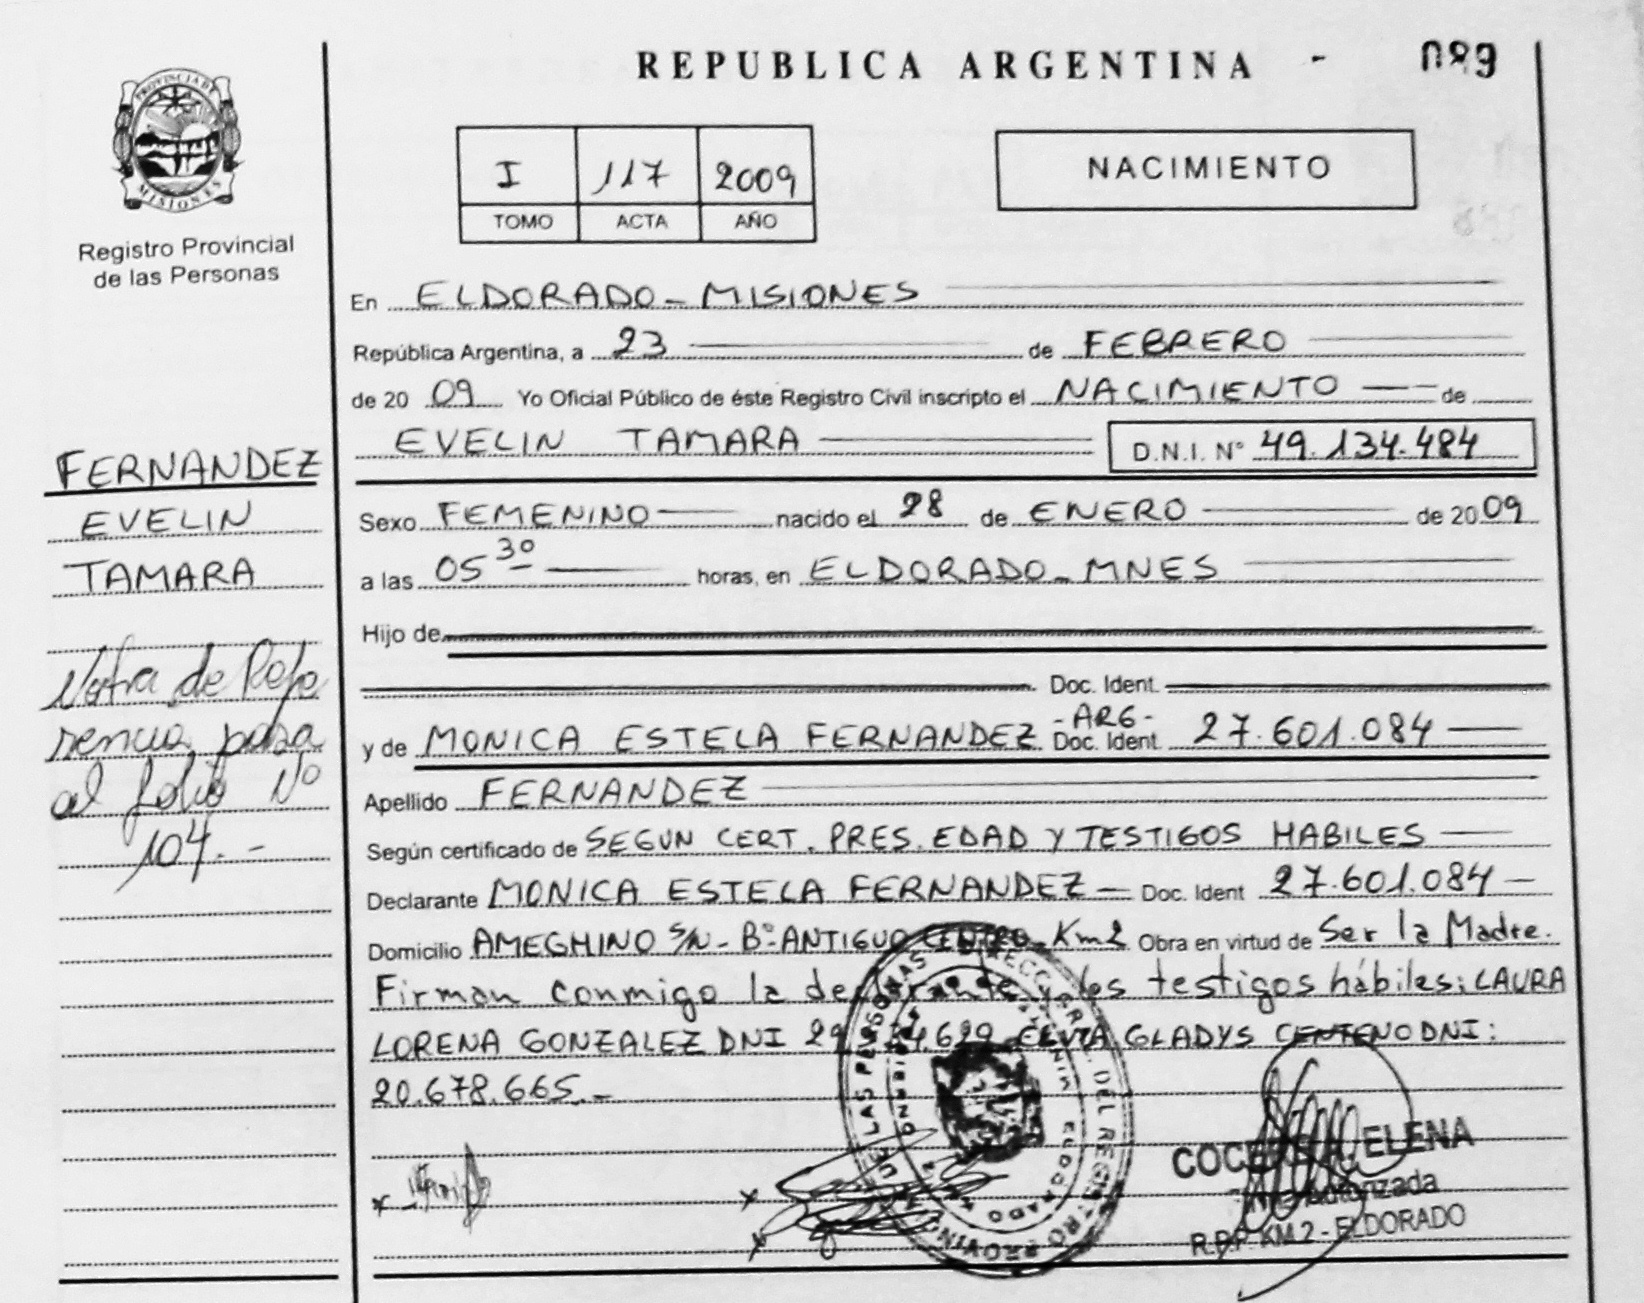 REPUBLICA ARGENTINA - 089
PROVINCIA DE MISIONES
Registro Provincial
de las Personas
I 117 2009
TOMO ACTA AÑO
NACIMIENTO
En ELDORADO - MISIONES
República Argentina, a 23 de FEBRERO
de 2009 Yo Oficial Público de éste Registro Civil inscripto el NACIMIENTO de
EVELIN TAMARA D.N.I. Nº 49.134.484
Sexo FEMENINO nacido el 28 de ENERO de 2009
a las 05 30 horas, en ELDORADO - MNES
Hijo de
Doc. Ident.
y de MONICA ESTELA FERNANDEZ - ARG - Doc. Ident. 27.601.084
Apellido FERNANDEZ
Según certificado de SEGUN CERT. PRES. EDAD Y TESTIGOS HABILES
Declarante MONICA ESTELA FERNANDEZ Doc. Ident 27.601.084
Domicilio AMEGHINO S/N - Bº ANTIGUO CENTRO - Km2 Obra en virtud de Ser la Madre.
Firman conmigo la declarante y los testigos hábiles: LAURA
LORENA GONZALEZ DNI GLADYS CENTENO DNI:
20.678.665.-
FERNANDEZ
EVELIN
TAMARA
Nota de Refe
rencia pasa
al folio Nº
104.-
ELENA
Autorizada
R.P.P. KM.2 - ELDORADO